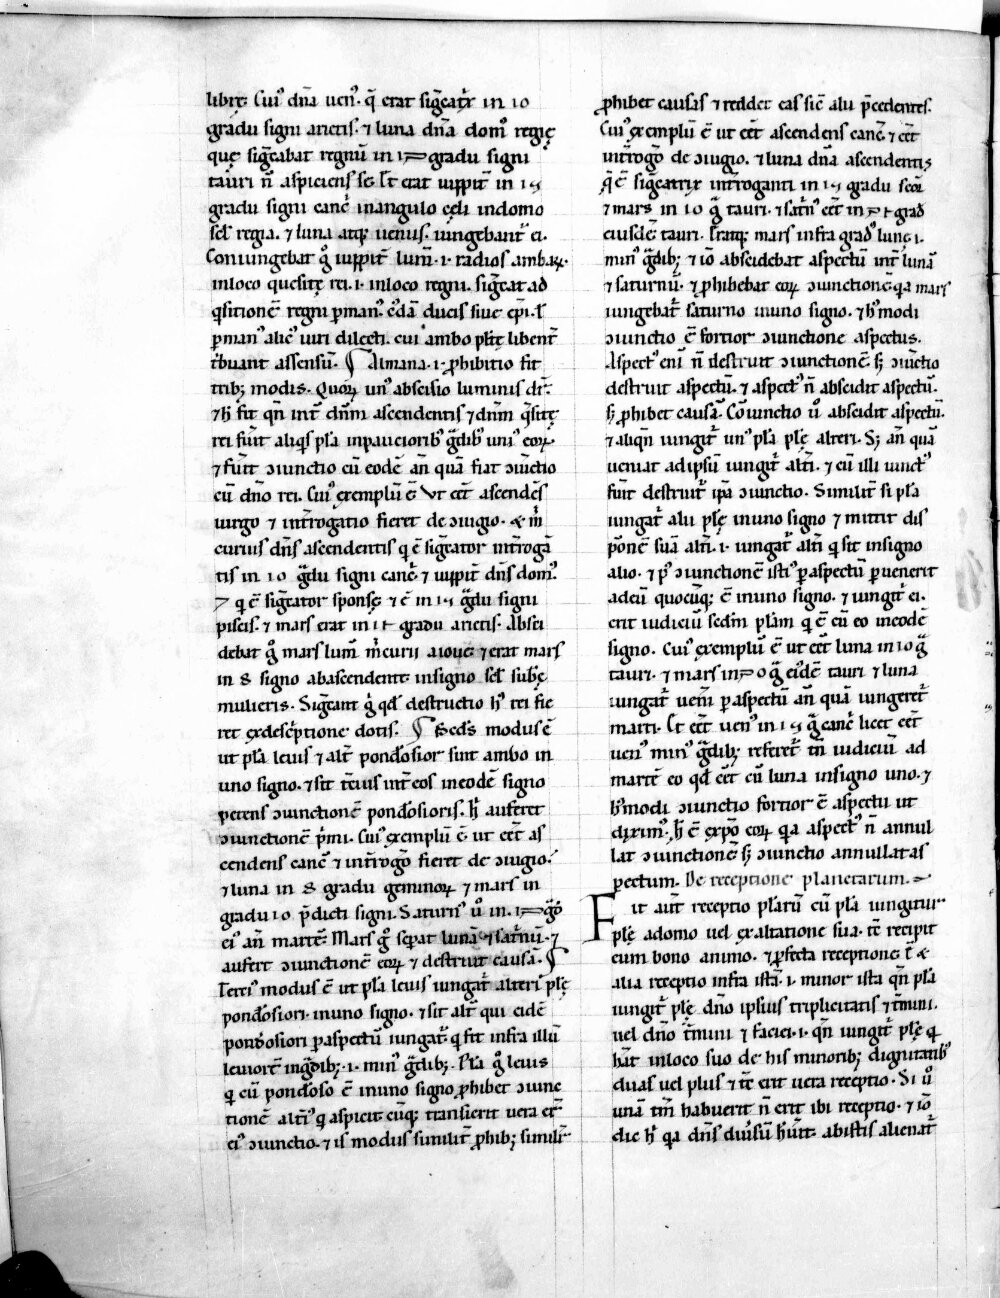 libre. Cui᾽ dn̄a uen᾽. q̄ erat sigc̄atx̄ in 10
gradu signi arietis. ⁊ luna dn̄a dom᾽ regię
quę sigc̄abat regnū in 1 gradu signi
tauri n̄ aspiciens se. s; erat iuppit̄ in 15
gradu signi canc̄ inangulo cęli indomo
scł regia. ⁊ luna atq; uenus. iungebant᷑ ei.
Coniungebat g᷎ iuppit̄ lum̄. i. radios ambaꝝ.
inloco quesitę rei. i. inloco regni. sigc̄at ad
q̇sitionē regni ꝑman᾽. c̄dā ducis siue ep̄i. ł
ꝑman᾽ alic᾽ uiri dilecti. cui ambo płtę libent̄
tͥbuant assensū. ¶ Almana. i. ꝓhibitio fit
trib; modis. Quoꝝ un᾽ abscisio luminis dr̄.
⁊ h̄ fit qn̄ int̄ dn̄m ascendentis ⁊ dn̄m q̄sitę
rei fūit aliq̇s pła inpaucioriƀ᾽ g᷑dib᾽ uni᾽ eoꝝ.
⁊ fūit ↄiunctio cū eodē an̄ quā fiat ↄiūctio
cū dn̄o rei. Cui᾽ exemplū ē Vt eēt ascendēs
uirgo ⁊ int̄rogatio fieret de ↄiugio. ⁊ m̄
curius dn̄s ascendentis q̇ ē sigc̄ator int̄rogā
tis in 10 g᷑du signi canc̄. ⁊ iuppit̄ dn̄s dom᾽.
7 q̇ ē sigc̄ator sponsę ⁊ ē in 15 g᷑du signi
piscis. ⁊ mars erat in 1 gradu arietis. Absci
debat g᷎ mars lum̄ m̄curii a ioue ⁊ erat mars
in 8 signo abascendente insigno scł subc̄ę
mulieris. Sigc̄ant g᷎ qđ destructio h᾽ rei fie
ret exdesc̄ptione dotis. ¶ Secđs modus ē
ut pła leuis ⁊ alt̄ ponđosior sint ambo in
uno signo. ⁊ sit t̄cius int̄ eos ineodē signo
petens ↄiunctionē ponđosioris. h̄ auferet
ↄiunctionē pͥmi. Cui᾽ exemplū ē. ut eēt as
cendens canc̄ ⁊ int̄rog᷎ fieret de ↄiugio.
⁊ luna in 8 gradu geminoꝝ ⁊ mars in
gradu 10 p̄dicti signi. Saturn᾽ u᷎ in. 1 g᷎
ei᾽ an̄ martē. Mars g᷎ sepat lunā ⁊ satn̄ū. ⁊
aufert ↄiunctionē eoꝝ ⁊ destruit causā. ¶
Terci᾽ modus ē ut pła leuis iungat᷑ alteri płę
ponđosiori. inuno signo. ⁊ sit alt̄ qui eidē
ponđosiori ꝑaspectū iungat᷑. q̇ sit infra illū
leuiorē ing᷑dib;. i. min᾽ g᷑dib;. Pła g᷎ leuis
q̇ cū ponđoso ē inuno signo ꝓhibet ↄiunc
tionē alti᾽ q̇ aspicit. cūq; transierit uera er̄
ei᾽ ↄiunctio. ⁊ is modus similit̄ ꝓhib; similit̄
ꝓhibet causas ⁊ reddet eas sic̄ alii p̄cedentes.
Cui᾽ exemplū ē ut eēt ascendens canc̄ ⁊ eēt
int̄rog᷎ de ↄiugio. ⁊ luna dn̄a ascendentis
q̄ ē sigc̄atrix int̄roganti in 15 gradu scōi
⁊ mars in 10 g᷑ tauri. ⁊ satn̄᾽ eēt in grad
eiusdē tauri. Eratq; mars infra grad᾽ lunę i.
min᾽ g᷑dib; ⁊ i᷎o abscidebat aspectum int̄ lunā
⁊ saturnū. ⁊ ꝓhibebat eoꝝ ↄiunctionē q̇a mars
iungebat᷑ saturno inuno signo. ⁊ h᾽modi
ↄiunctio ē fortior ↄiunctione aspectus.
Aspect᾽ eni᾽ n̄ destruit ↄiunctionē. s; ↄiūctio
destruit aspectū. ⁊ aspect᾽ n̄ abscidit aspectū.
s; ꝓhibet causā. Cōiunctio u᷎ abscidit aspectū.
⁊ aliqn̄ iungit᷑ un᾽ pła płę alteri. S; an̄ quā
ueniat adipsū iungit᷑ alt̄i. ⁊ cū illi iunct᾽
fūit destruit᷑ ip̄a ↄiunctio. Similit̄ si pła
iungat᷑ alii płę inuno signo ⁊ mittit dis
p᷎onē suā alt̄i. i. iungat᷑ alt̄i q̇ sit insigno
alio. ⁊ p᾽ ↄiunctionē isti᾽ ꝑaspectū ꝑuenerit
adeū quocūq; ē inuno signo. ⁊ iungit᷑ ei.
erit iudiciū sedm̄ płam q̇ ē cū eo ineodē
signo. Cui᾽ exemplū ē ut eēt luna in 10 g᷑
tauri. ⁊ mars in g᷑ ei᾽dē tauri ⁊ luna
iungat᷑ uen̄i ꝑaspectū an̄ quā iungeret᷑
marti. Et eēt uen᾽ in 15 g᷑ canc̄ licet eēt
uen᾽ min᾽ g᷑dib; referet᷑ tn̄ iudiciū ad
martē eo qđ eēt cū luna insigno uno. ⁊
h᾽modi ↄiunctio fortior ē aspectu ut
dixim᾽. h̄ ē exp᷎o eoꝝ q̇a aspect᾽ n̄ annul
lat ↄiunctionē s; ↄiunctio annullat as
pectum. De receptione planetarum.
Fit aut̄ receptio płarū cū pła iungitur
płę adomo uel exaltatione sua. tc̄ recipit
eum bono animo. ⁊ ꝑfecta receptione t̄ ⁊
alia receptio infra istā. i. minor ista qn̄ pła
iungit᷑ płę dn̄o ipsius triplicitatis ⁊ t̄mini.
uel dn̄o t̄mini ⁊ faciei. i. qn̄ iungit᷑ płę q̇
hāt inloco suo de his minorib; dignitatib᾽
duas uel plus ⁊ tc̄ erit uera receptio. Si u᷎
unā tm̄ habuerit n̄ erit ibi receptio. ⁊ i᷎o
dic h̄ q̇a dn̄s diuisū hūit. abistis alienat᷑